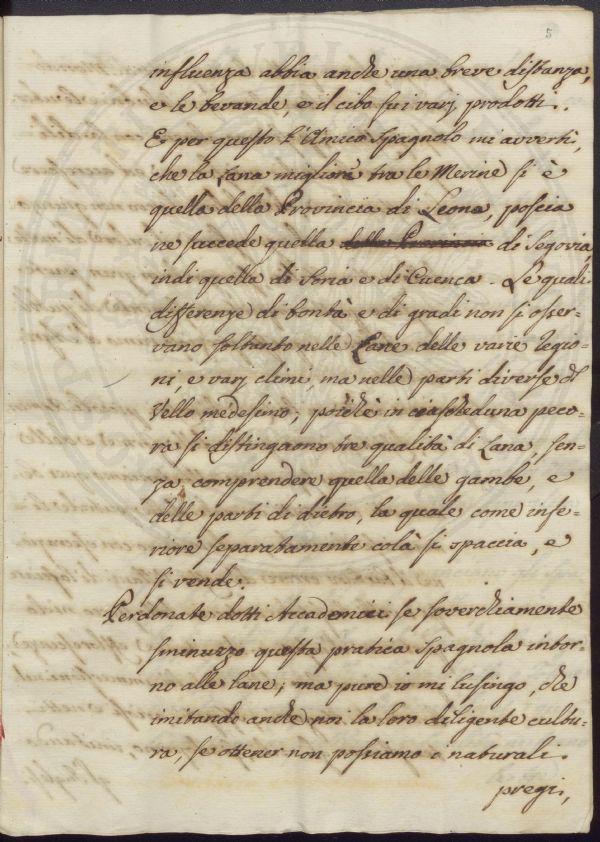 5
influenza abbia anche una breve distanza,
e le bevande, e il cibo sui varj prodotti.
E per questo l'Amico Spagnolo mi avvertì,
che la Lana migliore tra le Merine si è
quella della Provincia di Leone, poscia
ne succede quella della Provincia di Segovia,
indi quella di Soria e di Cuenca. Le quali
differenze di bontà e di gradi non si osser-
vano soltanto nelle Lane delle varie regio-
ni, e varj climi, ma nelle parti diverse del
Vello medesimo; poichè in ciascheduna peco-
ra si distinguono tre qualità di Lana, sen-
za comprendere quella delle gambe, e
delle parti di dietro, la quale come infe-
riore separatamente colà si spaccia, e
si vende.
Perdonate dotti Accademici se soverchiamente
sminuzzo questa pratica Spagnola intor-
no alle lane; ma pure io mi lusingo, che
imitando anche noi la loro diligente cultu-
ra, se ottener non possiamo i naturali
pregi,